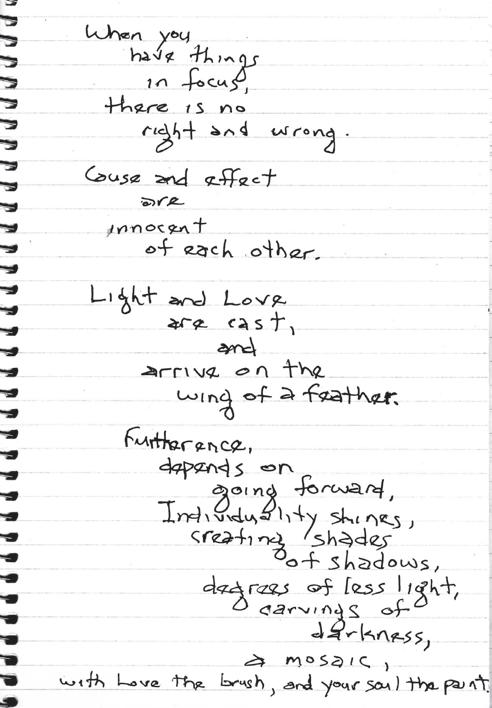 When you
have things
in focus,
there is no
right and wrong.
Cause and effect
are
innocent
of each other.
Light and Love
are cast,
and
arrive on the
wing of a feather.
Furtherence,
depends on
going forward,
Individuality shines,
creating shades
of shadows,
degrees of less light,
carvings of
darkness,
a mosaic,
with Love the brush, and your soul the paint.